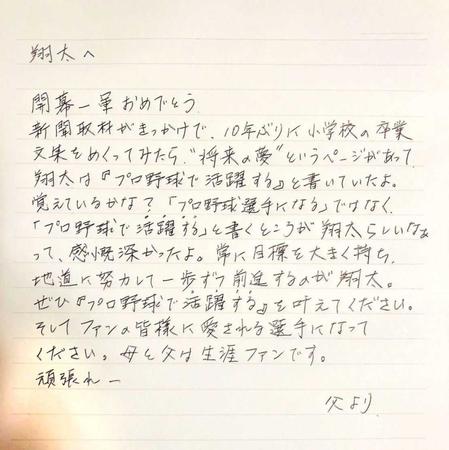 翔太へ
開幕一軍おめでとう
新聞取材がきっかけで、10年ぶりに小学校の卒業
文集をめくってみたら、"将来の夢"というページがあって
翔太は『プロ野球で活躍する』と書いていたよ。
覚えているかな?「プロ野球選手になる」ではなく、
「プロ野球で活躍する」と書くところが翔太らしいなあ
って、感慨深かったよ。常に目標を大きく持ち、
地道に努力して一歩ずつ前進するのが翔太。
ぜひ『プロ野球で活躍する』を叶えてください。
そしてファンの皆様に愛される選手になって
ください。母と父は生涯ファンです。
頑張れー
父より